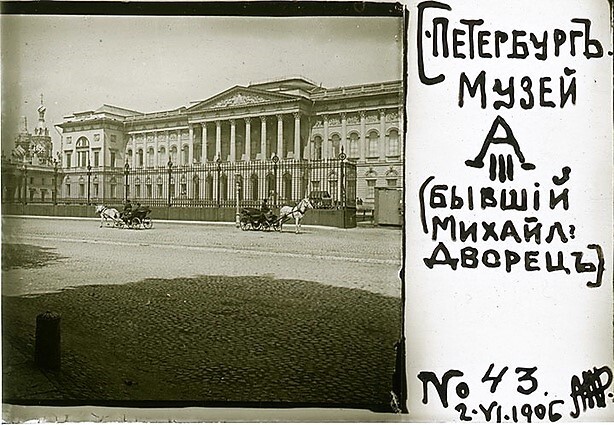 ПЕТЕРБУРГЪ.
МУЗЕЙ
А
III
(БЫВШІЙ
МИХАЙЛ:
ДВОРЕЦЪ)
No 43.
2-VI.1906